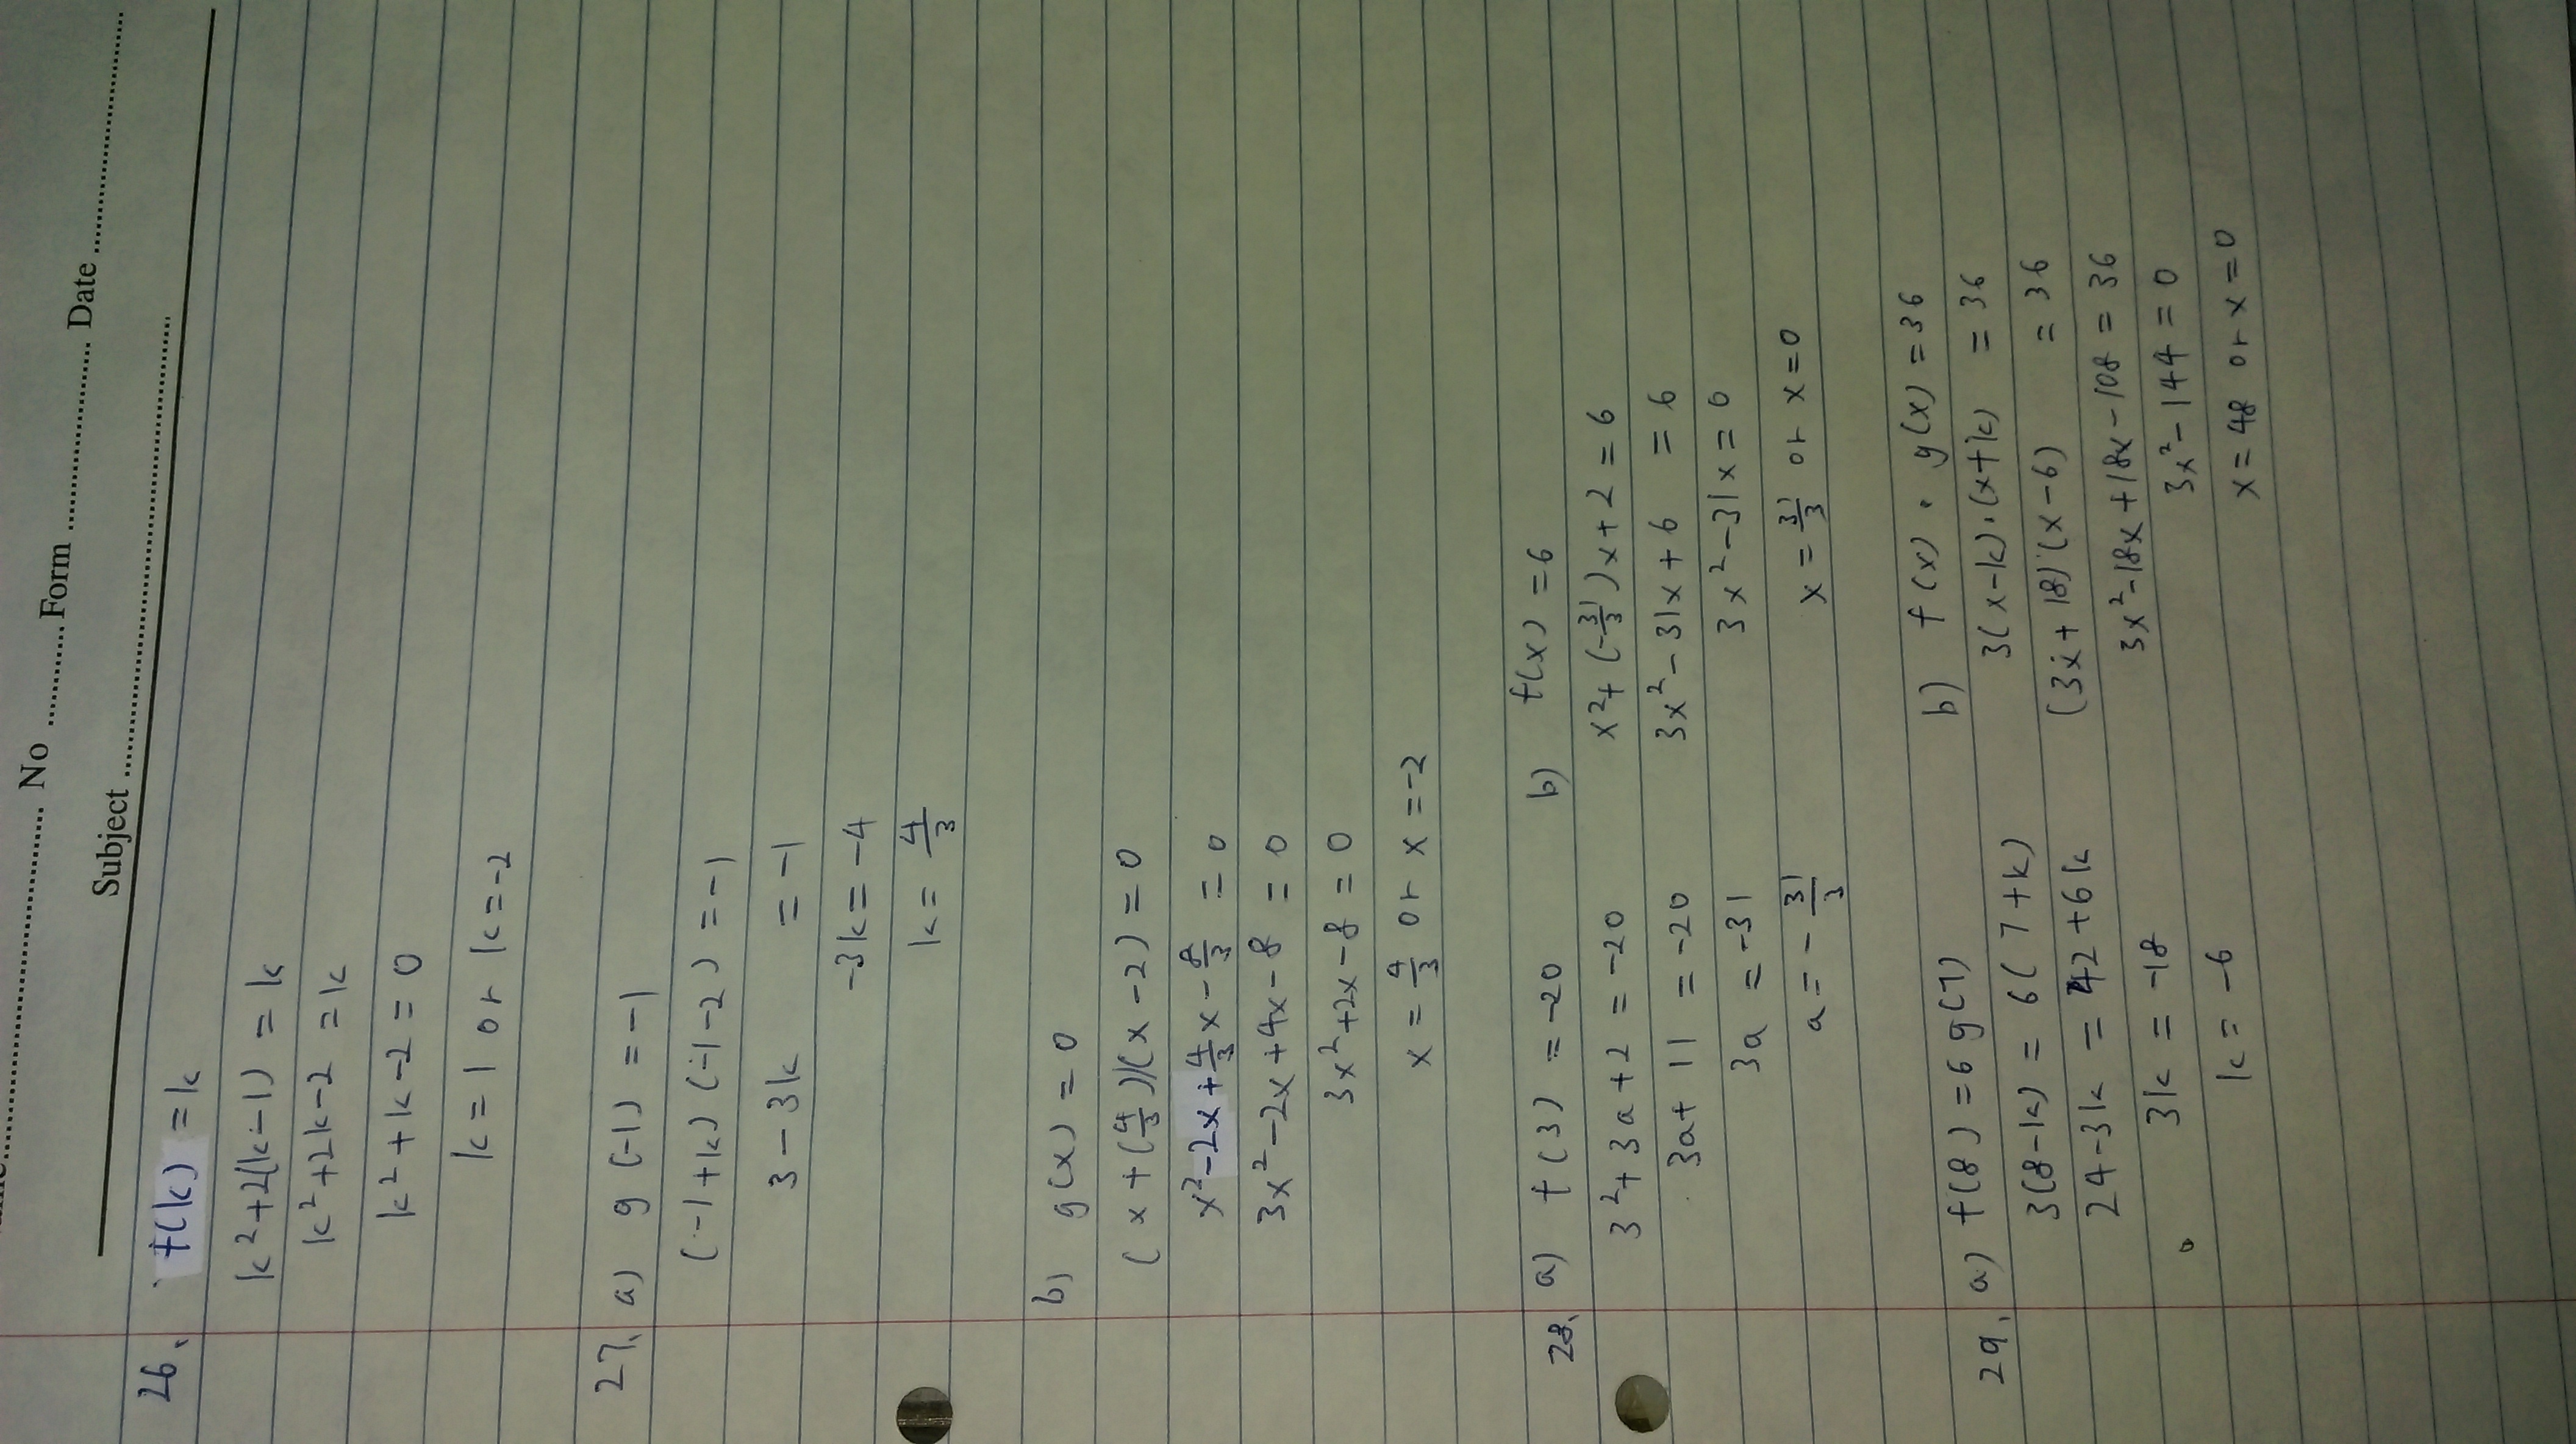 No .......... Form .................... Date ..........................
Subject ..................................................
26. f(k) = k
k²+2(k-1) = k
k²+2k-2 = k
k²+k-2 = 0
k = 1 or k = -2
27. a) g(-1) = -1
(-1+k)(-1-2) = -1
3-3k = -1
-3k = -4
k = 4/3
b) g(x) = 0
(x+(4/3))(x-2) = 0
x²-2x+4/3x-8/3 = 0
3x²-2x+4x-8 = 0
3x²+2x-8 = 0
x = 4/3 or x = -2
28. a) f(3) = -20
3²+3a+2 = -20
3a+11 = -20
3a = -31
a = -31/3
b) f(x) = 6
x²+(-31/3)x+2 = 6
3x²-31x+6 = 6
3x²-31x = 0
x = 31/3 or x = 0
29. a) f(8) = 6g(7)
3(8-k) = 6(7+k)
24-3k = 42+6k
3k = -18
k = -6
b) f(x)·g(x) = 36
3(x-k)·(x+k) = 36
(3x+18)(x-6) = 36
3x²-18x+18x-108 = 36
3x²-144 = 0
x = 48 or x = 0